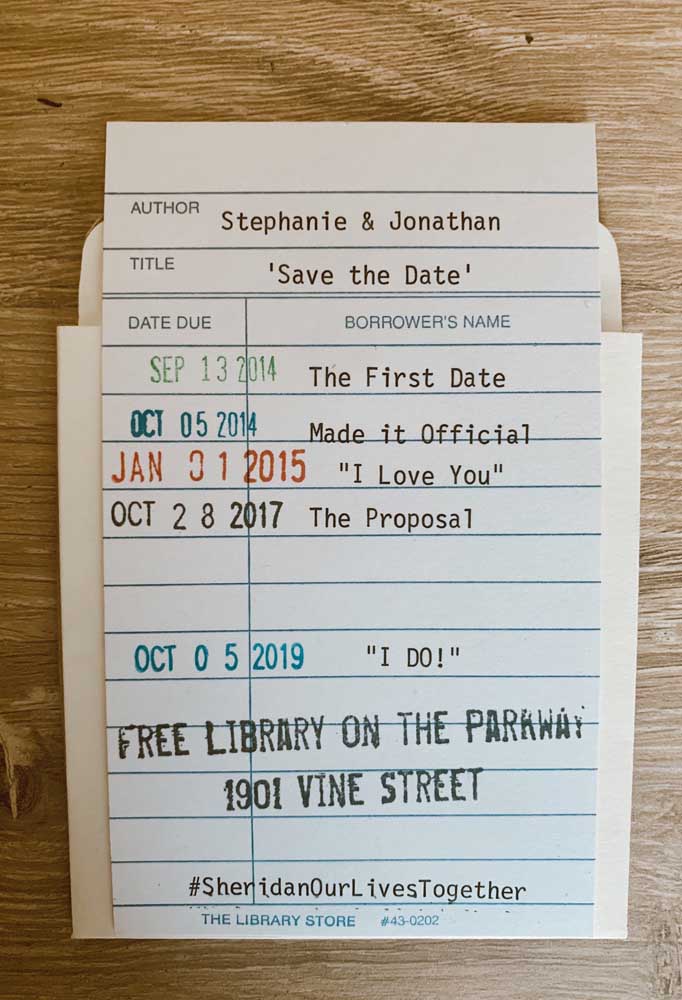 AUTHOR Stephanie & Jonathan
TITLE 'Save the Date'
DATE DUE BORROWER'S NAME
SEP 13 2014 The First Date
OCT 05 2014 Made it Official
JAN 01 2015 "I Love You"
OCT 28 2017 The Proposal
OCT 05 2019 "I DO!"
FREE LIBRARY ON THE PARKWAY
1901 VINE STREET
#SheridanOurLivesTogether
THE LIBRARY STORE #43-0202